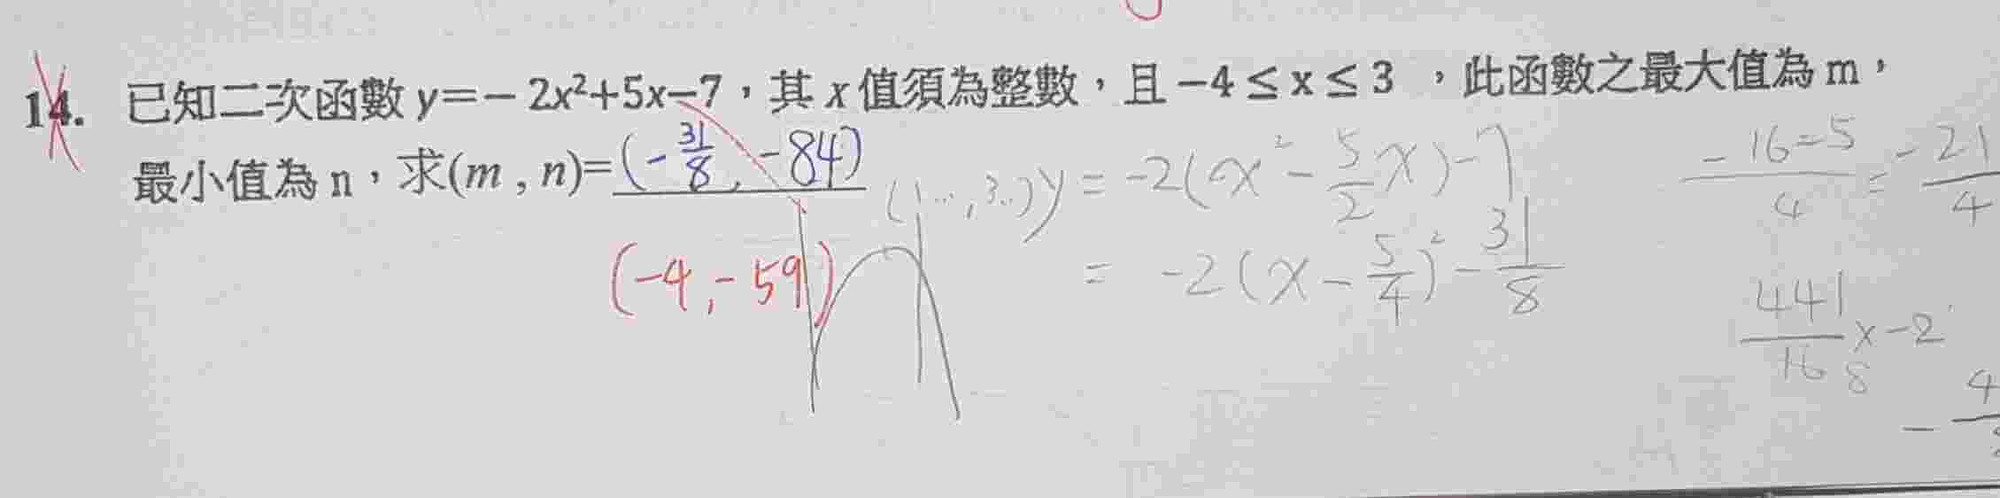 14. 已知二次函數 y=－2x²+5x−7，其 x 值須為整數，且 −4 ≤ x ≤ 3 ，此函數之最大值為 m，
最小值為 n，求(m , n)=(-31/8, -84)
(1..., 3..) y = -2(x² - 5/2 x) - 7
= -2(x - 5/4)² - 31/8
(-4, -59)
-16-5/4 = -21/4
441/16 x -2
8